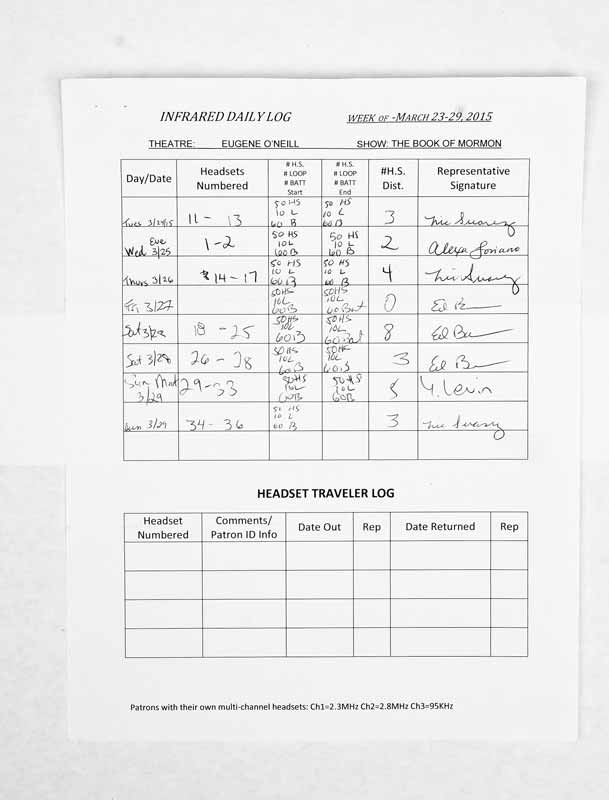 INFRARED DAILY LOG WEEK OF -MARCH 23-29, 2015
THEATRE: EUGENE O'NEILL SHOW: THE BOOK OF MORMON
Day/Date Headsets Numbered # H.S. # LOOP # BATT Start # H.S. # LOOP # BATT End #H.S. Dist. Representative Signature
Tues 3/24/15 11 - 13 50 HS 10 L 60 B 50 HS 10 L 60 B 3
Eve Wed 3/25 1-2 50 HS 10L 60 B 50 HS 10 L 60 B 2 Alexa Soriano
Thurs 3/26 14-17 50 HS 10 L 60 B 50 HS 10 L 60 B 4
Fri 3/27 50HS 10L 60B 50HS 10L 60 Bat 0 Ed
Sat 3/28 18 - 25 50HS 10L 60B 50HS 10L 60 Bat 8 Ed
Sat 3/28 26 - 28 50HS 10L 60 B 50HS 10L 60 B 3 Ed
Sun Mat 3/29 29-33 50HS 10L 60B 50HS 10L 60B Y. Levin
Sun 3/29 34 - 36 50 HS 10 L 60 B 3
HEADSET TRAVELER LOG
Headset Numbered Comments/ Patron ID Info Date Out Rep Date Returned Rep
Patrons with their own multi-channel headsets: Ch1=2.3MHz Ch2=2.8MHz Ch3=95KHz